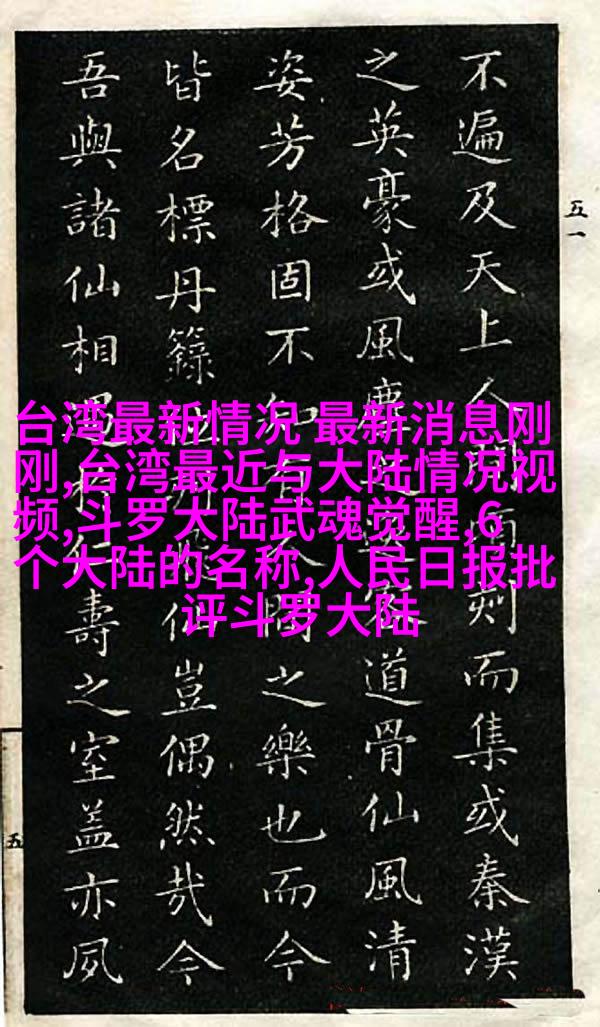 台湾最新情况 最新消息刚
刚,台湾最近与大陆情况视
频,斗罗大陆武魂觉醒,6
个大陆的名称,人民日报批
评斗罗大陆
五一
不遍及天上人間刻而集或秦漢
之英豪或風塵之客道骨仙風清
姿芳格固不知有人間之樂也而今
皆名標丹籙仙豈偶然哉今
吾與諸仙相遇於仁壽之室蓋亦夙
五